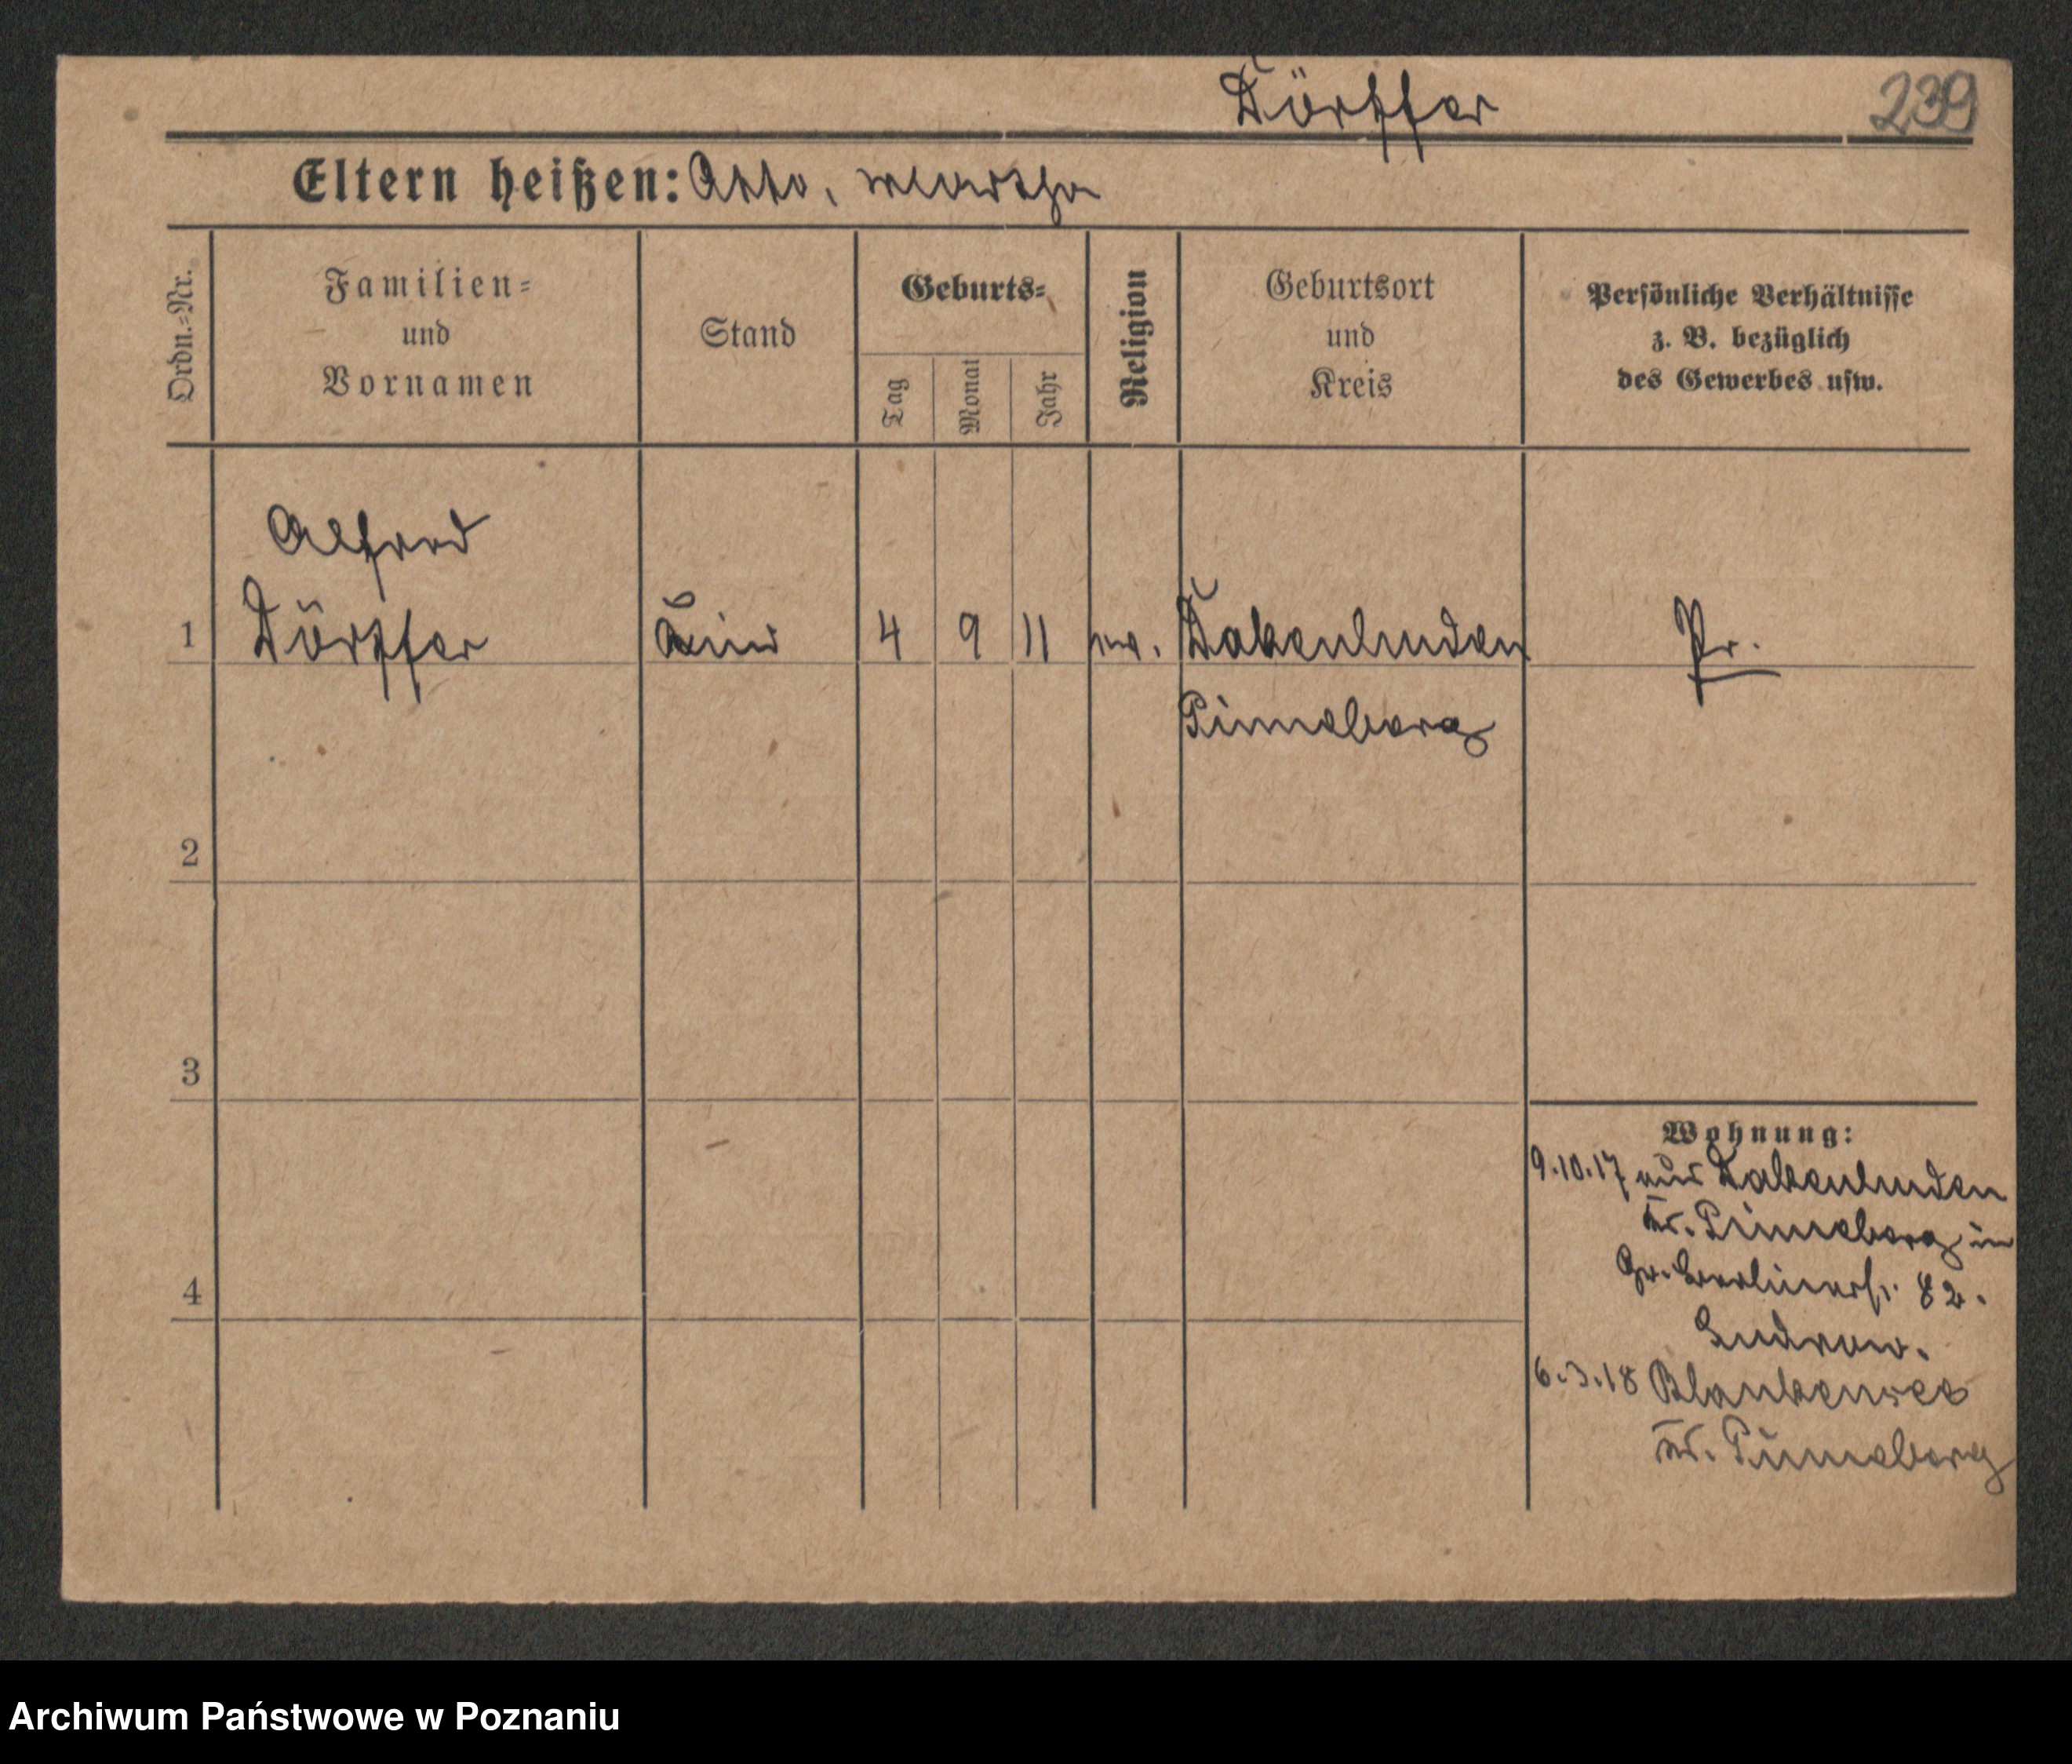 Dörffer 239
Eltern heißen: Otto, Martha
Ordn.=Nr.
Familien=
und
Vornamen
Stand
Geburts=
Tag
Monat
Jahr
Religion
Geburtsort
und
Kreis
Persönliche Verhältnisse
z. B. bezüglich
des Gewerbes usw.
Alfred
1 Dörffer Kind 4 9 11 ev. Dakenhuden Pr.
Pinneberg
2
3
4
Wohnung:
9.10.17 aus Dakenhuden
Kr. Pinneberg in
Gr. Berlinerst. 82.
6.3.18 Blankensee
Kr. Pinneberg
Archiwum Państwowe w Poznaniu